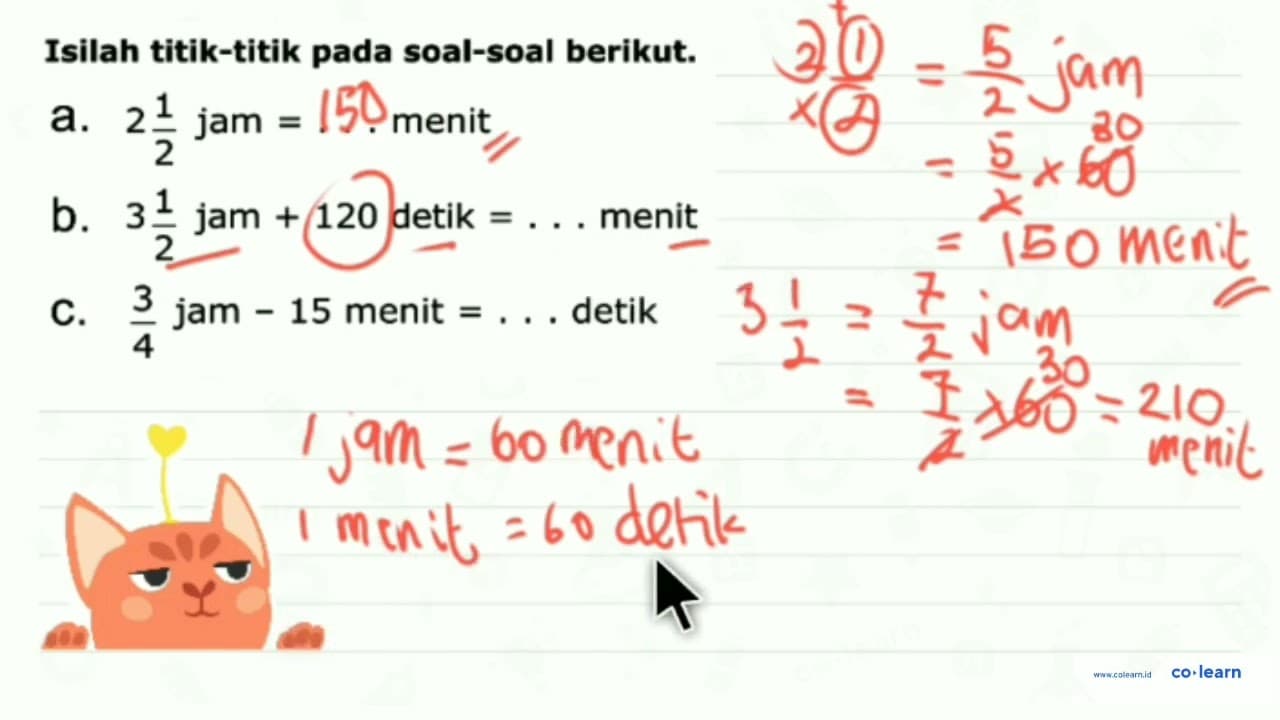 Isilah titik-titik pada soal-soal berikut.
a. 2 1/2 jam = 150 . . . menit
b. 3 1/2 jam + 120 detik = . . . menit
c. 3/4 jam – 15 menit = . . . detik
1 jam = 60 menit
1 menit = 60 detik
+
2 1/2 = 5/2 jam
×
= 5/2 × 60 30
= 150 menit
3 1/2 = 7/2 jam
= 7/2 × 60 30 = 210
menit
www.colearn.id co·learn